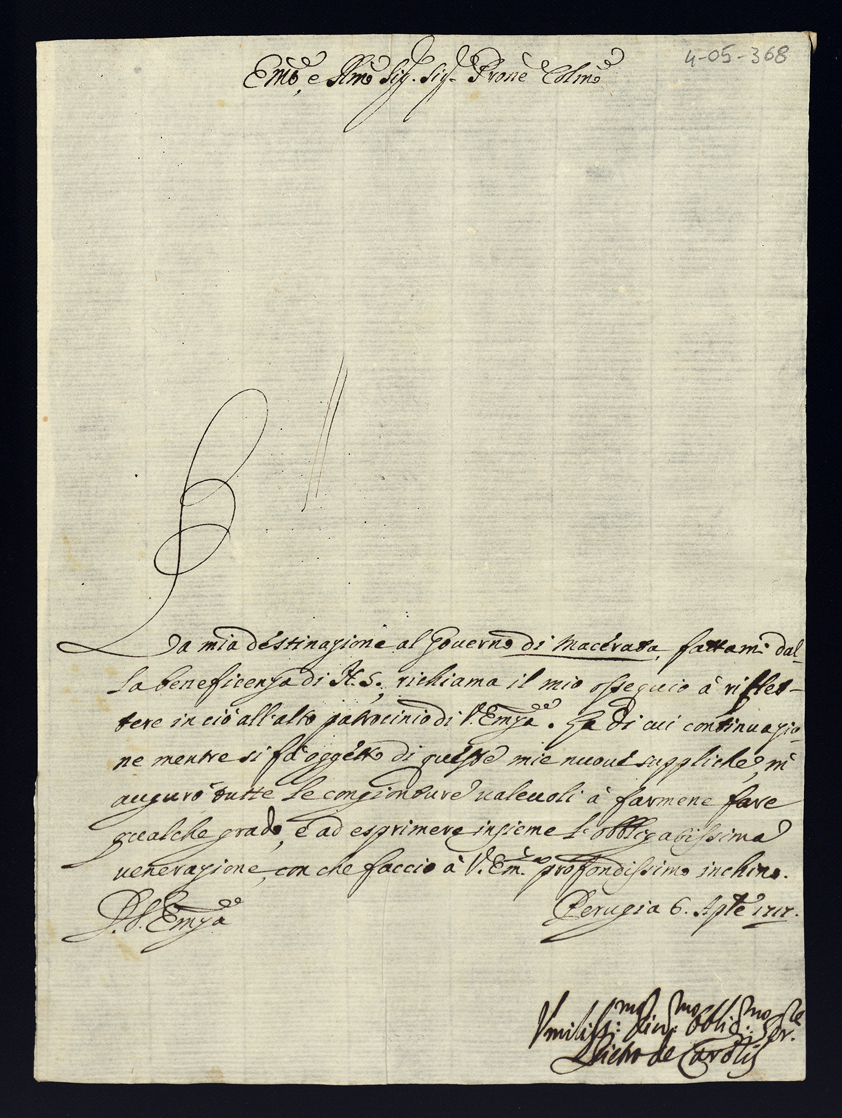 4-05-368
Emo, e Rmo Sig. Sig. Prone Colmo
La mia destinazione al Governo di Macerata, fattami dal-
la beneficenza di N. S., richiama il mio ossequio à riflet-
tere in ciò all'alto patrocinio di V. Emza. La di cui continuazio-
ne mentre si fà oggetto di queste mie nuove suppliche, m'
auguro tutte le congionture valevoli à farmene fare
qualche grado, e ad esprimere insieme l'obbligatissima
venerazione, con che faccio à V. Em. profondissimo inchino.
D. V. Emza
Perugia 6. Aple 1717.
Vmiliss.mo Div.mo Obblig.mo Ser.re
de Carolis